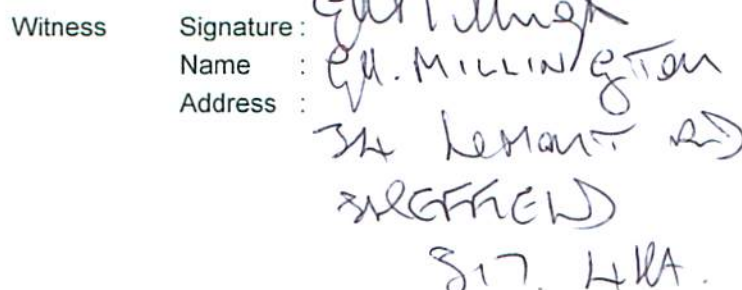 Witness Signature :
Name : G.M. MILLINGTON
Address :
34 LEMONT RD
SHEFFIELD
S17. 4HA.